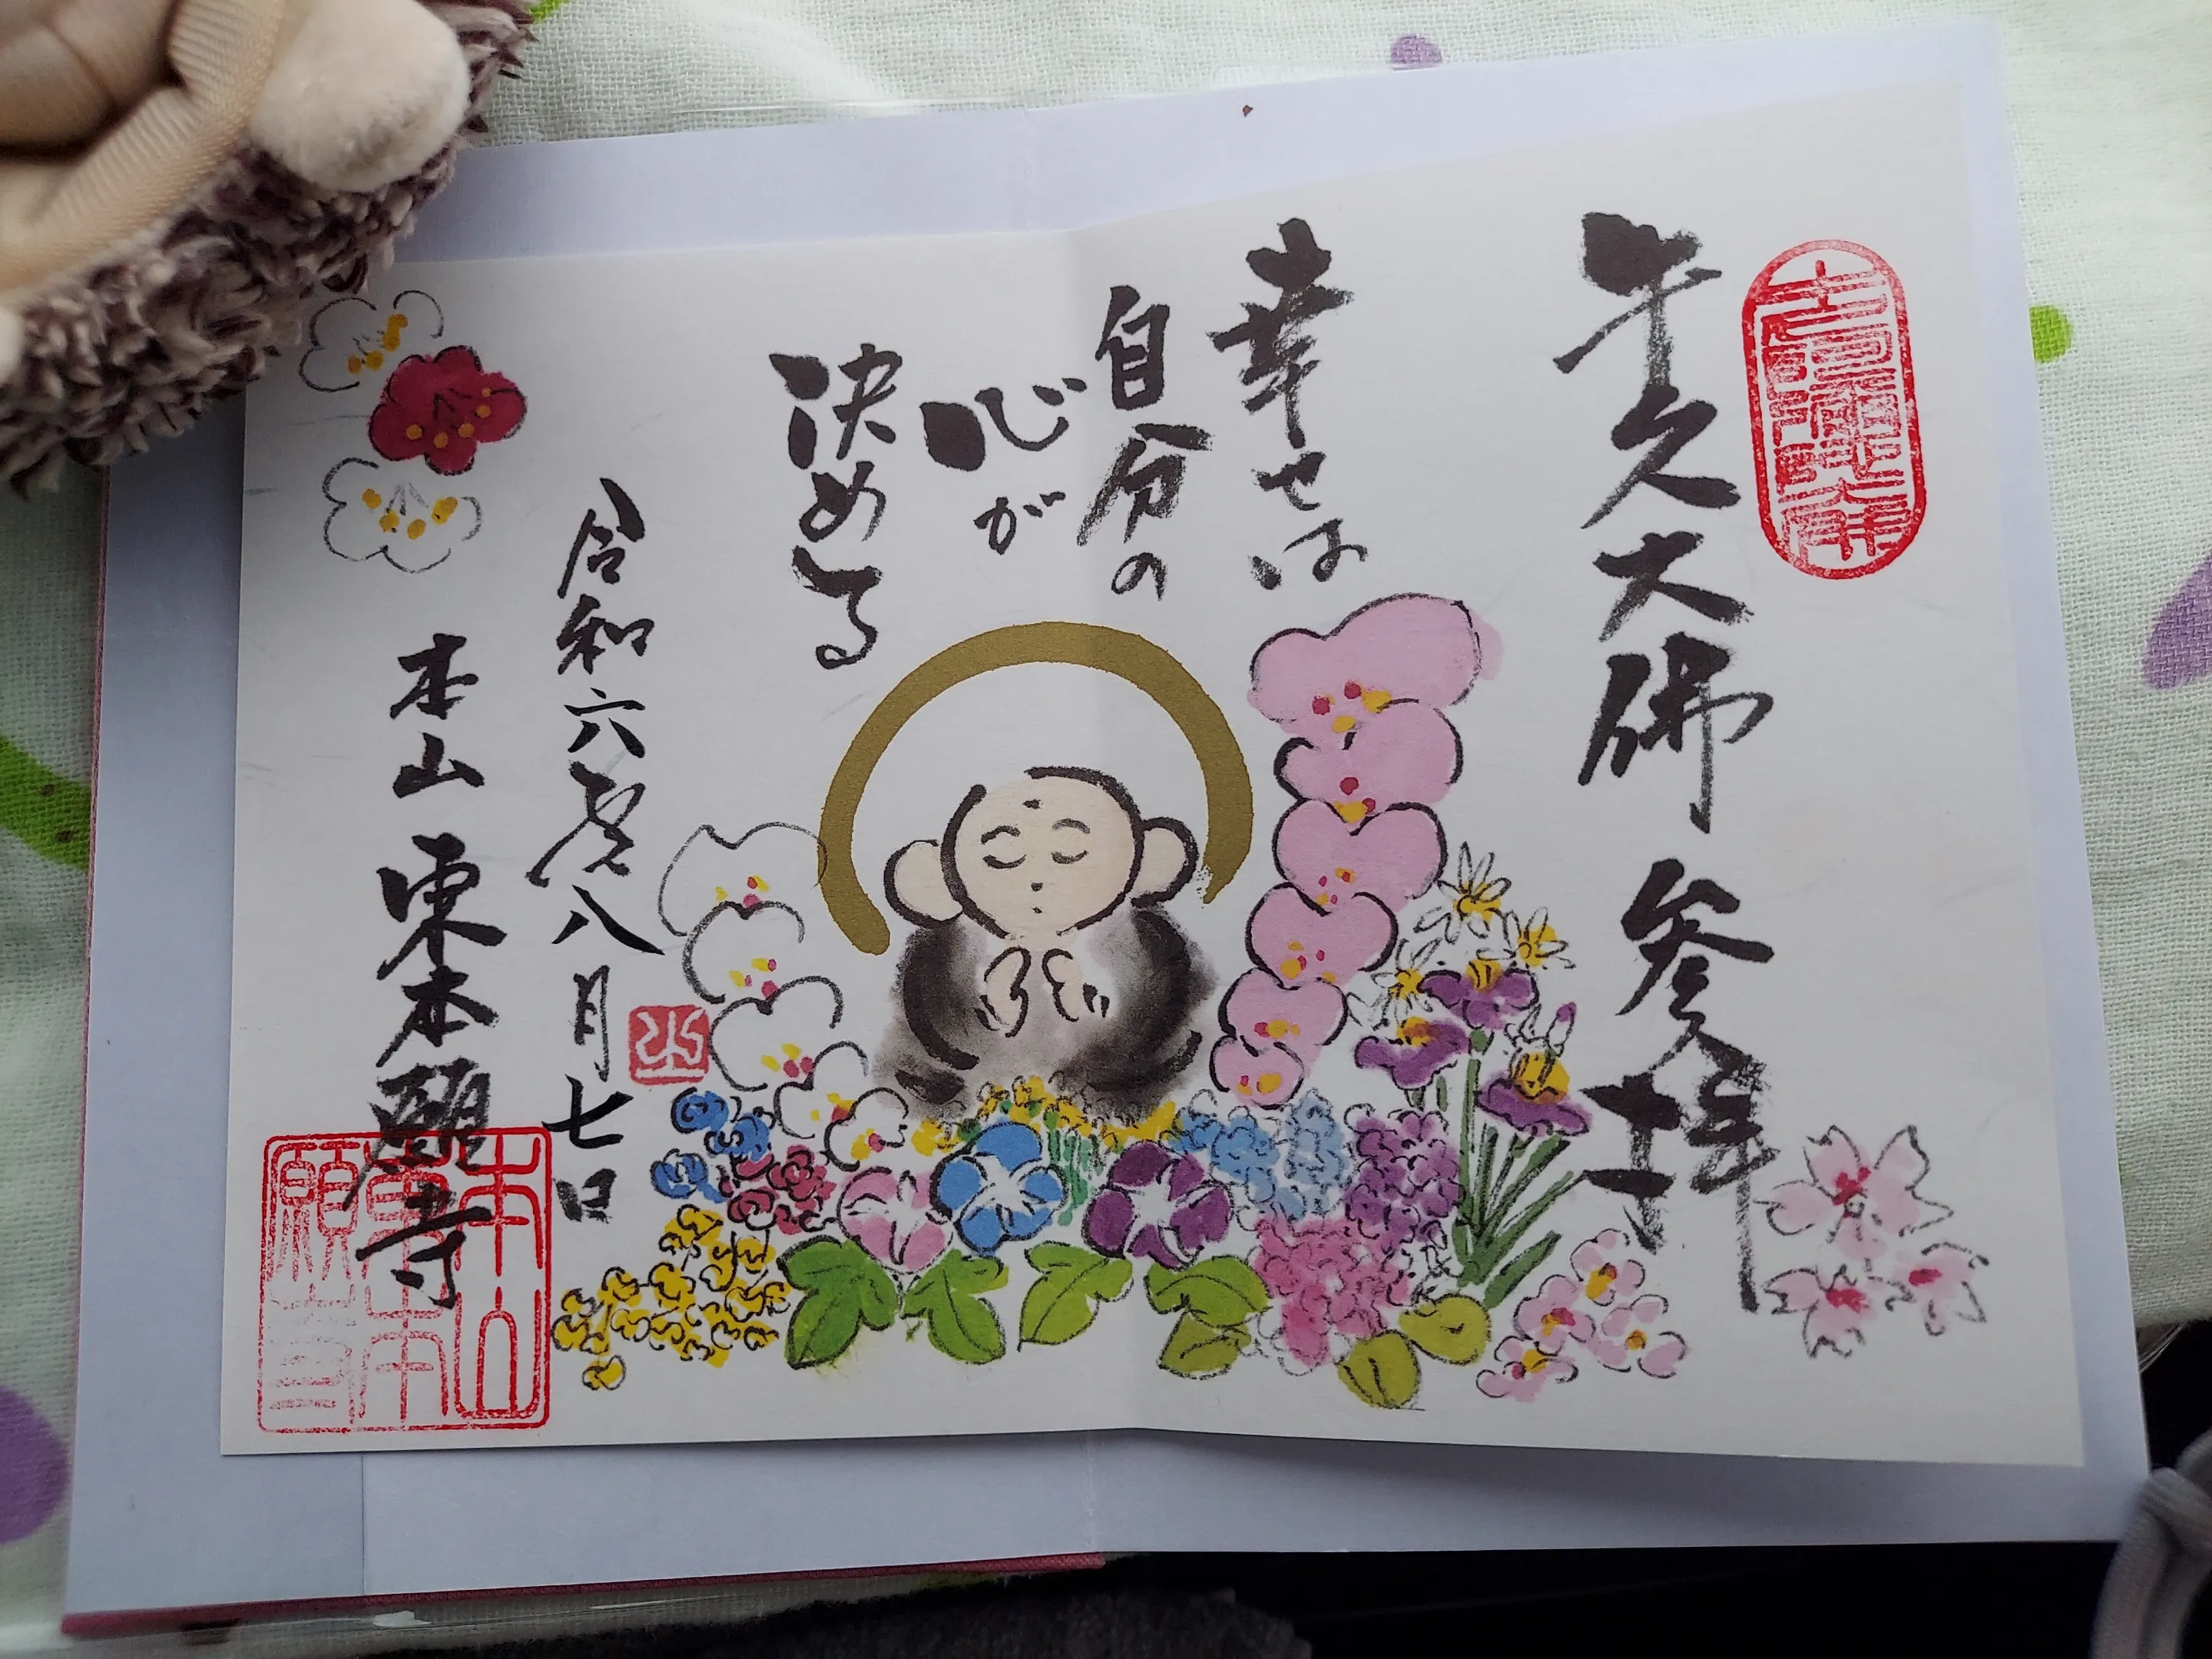 牛久大佛
参拝
幸せは
自分の
心が
決める
令和六年八月七日
本山
東本願寺
本山
東本
願寺